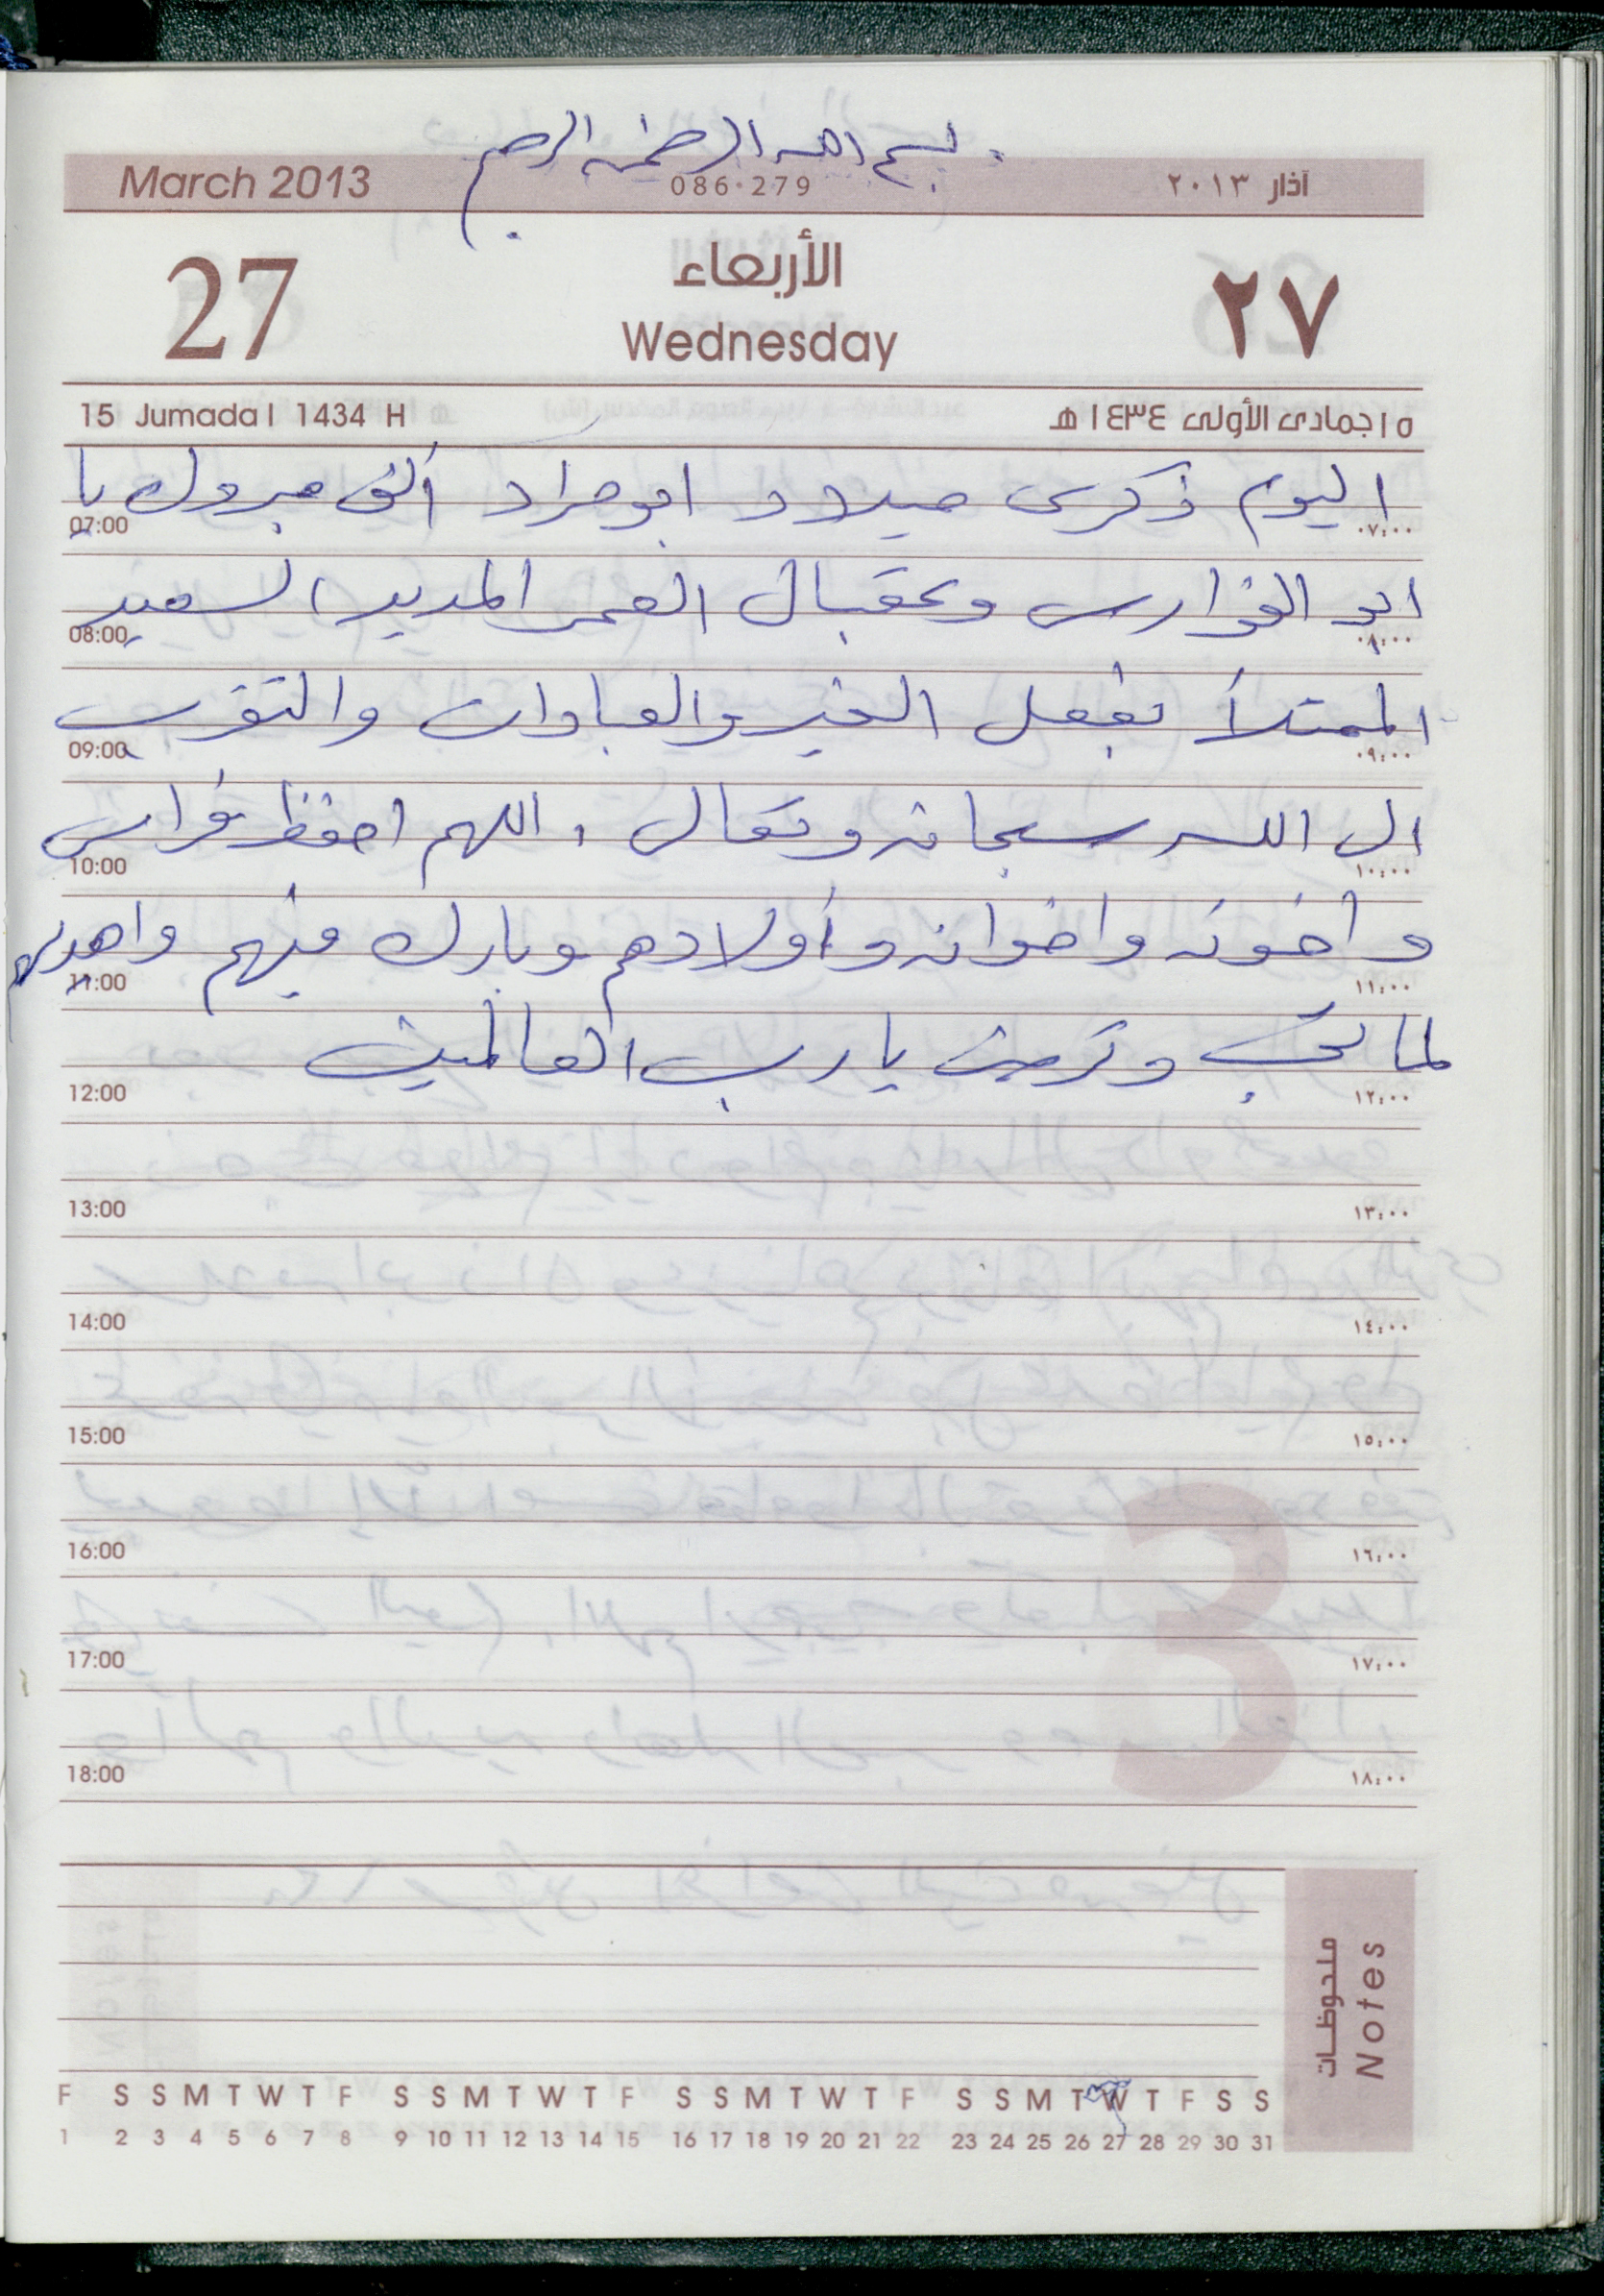 بسم الله الرحمن الرحيم
March 2013 086-279 آذار ٢٠١٣
27 الأربعاء ٢٧
Wednesday
15 Jumada I 1434 H ١٥ جمادى الأولى ١٤٣٤هـ
اليوم ذكرى ميلاد ابو مراد ألف مبروك يا
07:00 ٠٧:٠٠
ابو الفوارس وعقبال العمر المديد السعيد
08:00 ٠٨:٠٠
الممتلأ بفعل الخير والعبادات والتقرب
09:00 ٠٩:٠٠
الى الله سبحانه وتعالى ، اللهم احفظ فراس
10:00 ١٠:٠٠
وأخوته واخوانه وأولادهم وبارك فيهم واهديهم
11:00 ١١:٠٠
لما تحب وترضى يا رب العالمين
12:00 ١٢:٠٠
13:00 ١٣:٠٠
14:00 ١٤:٠٠
15:00 ١٥:٠٠
16:00 ١٦:٠٠
17:00 ١٧:٠٠
18:00 ١٨:٠٠
3
ملحوظات
Notes
F S S M T W T F S S M T W T F S S M T W T F S S M T W T F S S
1 2 3 4 5 6 7 8 9 10 11 12 13 14 15 16 17 18 19 20 21 22 23 24 25 26 27 28 29 30 31